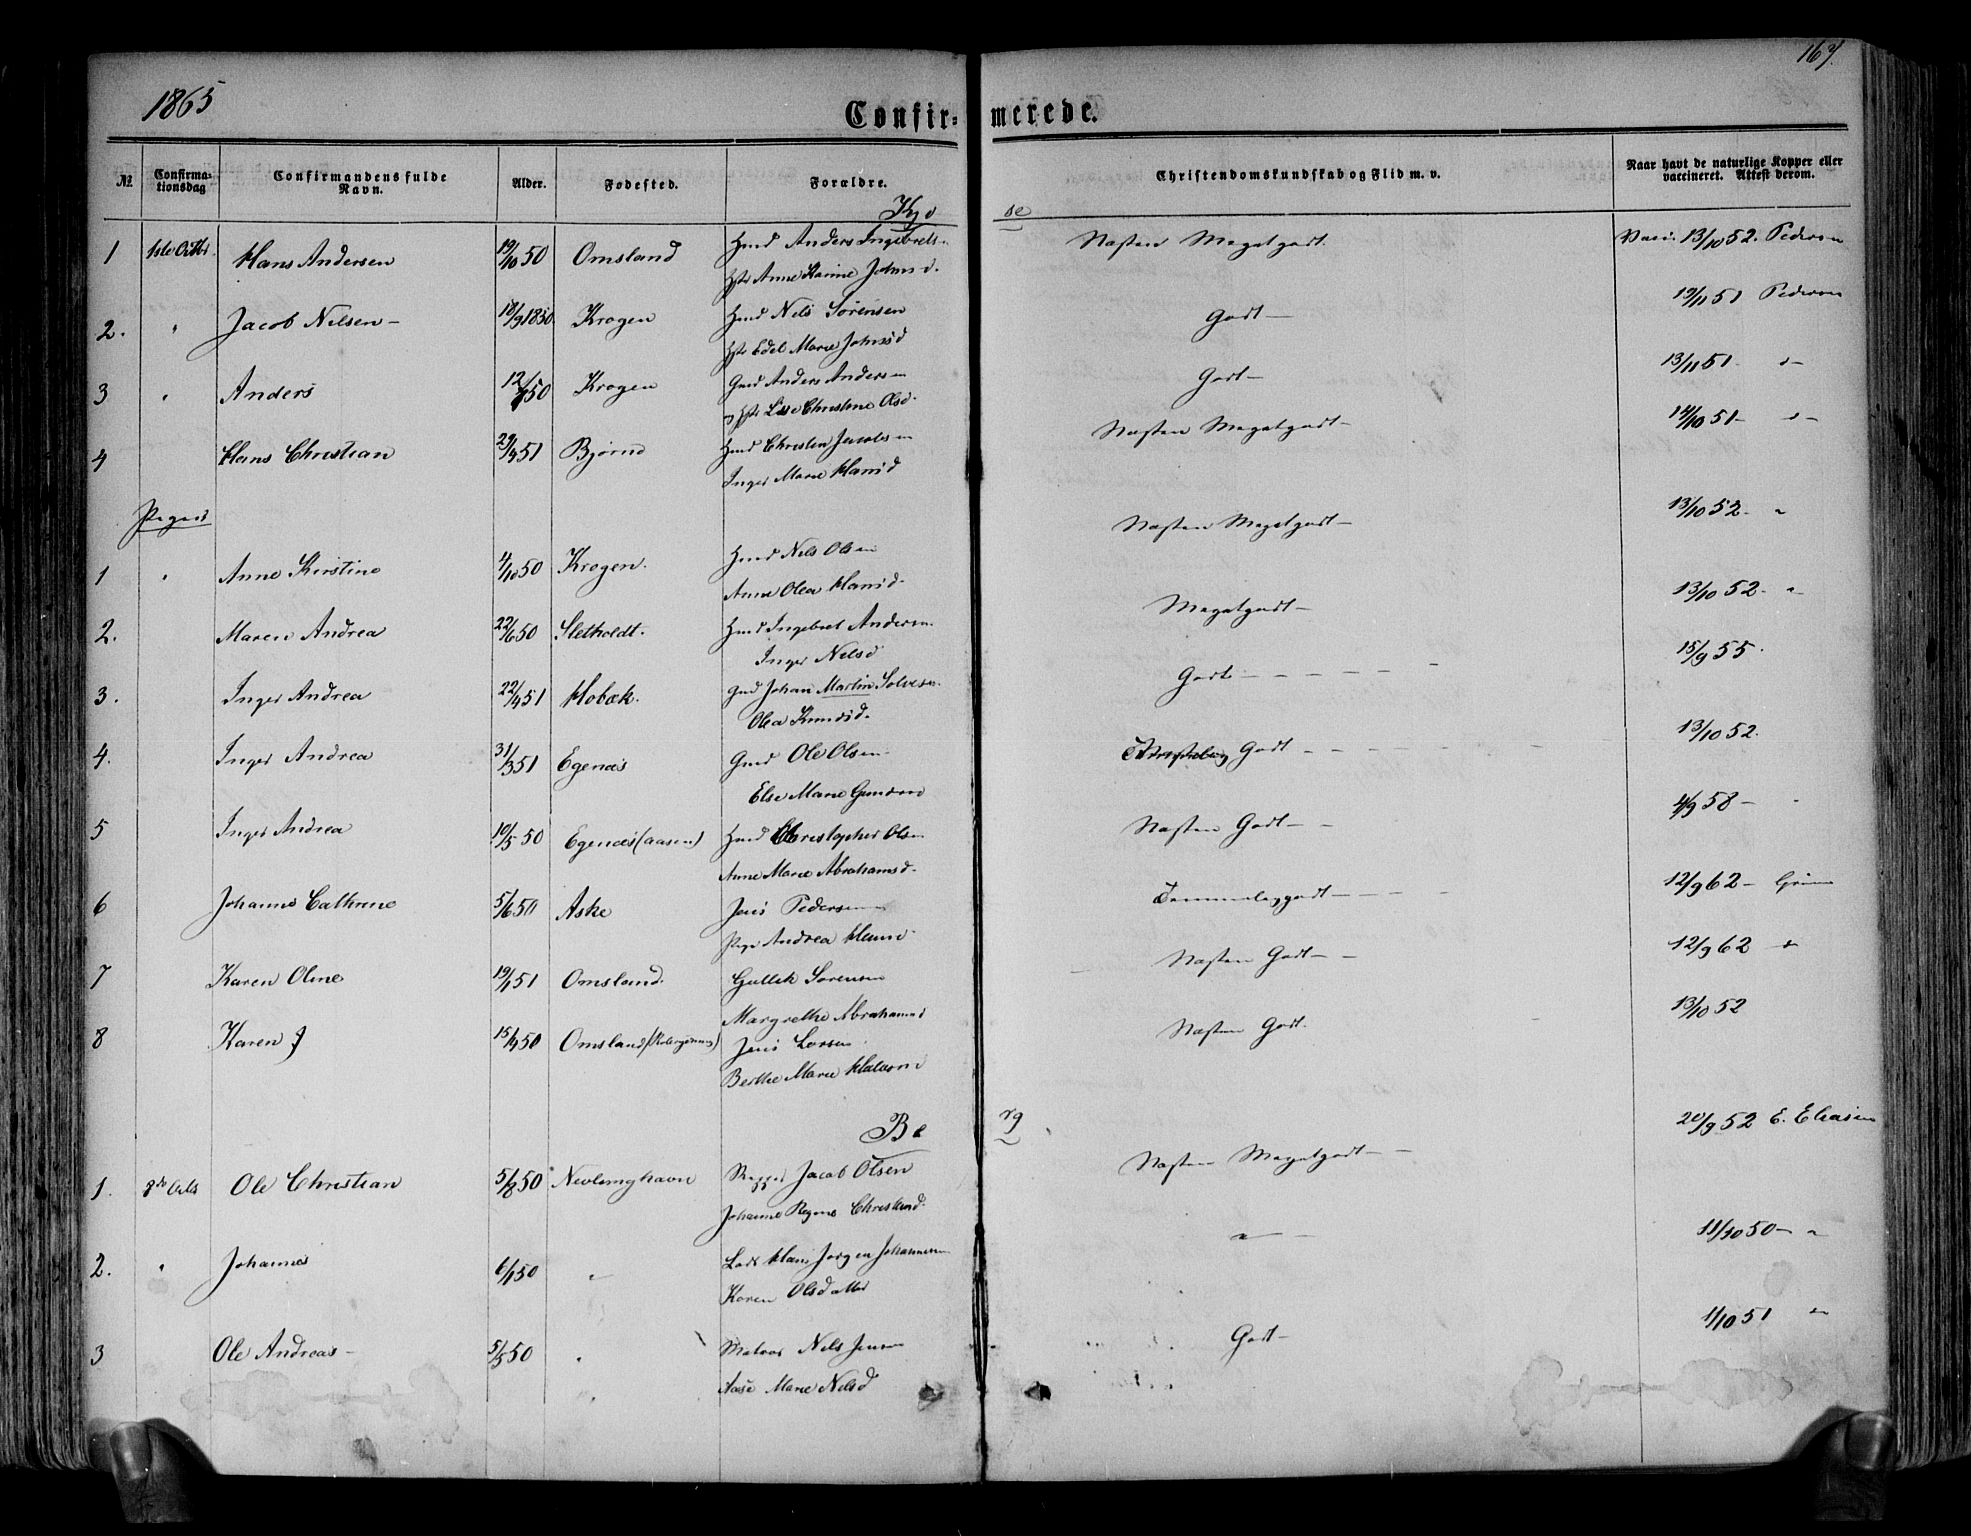 1865
167.
Confir= merede.
№ Confirma=tionsdag Confirmandens fulde Navn. Alder. Fødested. Forældre. Christendomskundskab og Flid m. v. Naar havt de naturlige Kopper eller vaccineret. Attest derom.
Kjo se
1 1ste Octbr. Hans Andersen 19/10 50 Omsland Hmd Anders Ingebrets. Næsten Megetgodt. Vacc. 13/10 52. Pedersen
Hst Anne Karine Johnsd.
2. " Jacob Nilsen – 18/9 1850 Krogen Hmd Nils Sørensen Godt – 19/11 51 Pedersen
Hst Edel Marie Johnsd
3 " Anders 12/ 50 Krogen Gmd Anders Andersen Godt – 13/11 51 –
og Hst Lise Christine Olsd.
4 Hans Christian 29/4 51 Bjørnø Hmd Christen Jacobsen Næsten Megetgodt – 14/10 51 –
Inger Marie Hansd
Piger
1 " Anne Kirstine 4/10 50 Krogen. Hmd Nils Olsen Næsten Megetgodt – 13/10 52 – "
Anne Olea Hansd.
2. Maren Andrea 22/6 50 Sletholdt. Hmd Ingebret Andersen. Megetgodt – 13/10 52 – "
Inger Nilsd
3. Inger Andrea 22/4 51 Hobæk. Gmd Johan Martin Solvesen. Godt – – – – – 15/9 55.
Olea Knudsd.
4. Inger Andrea 31/3 51 Egenæs Gmd Ole Olsen Godt – – – – 13/10 52.
Else Marie Gundersd
5 Inger Andrea 10/5 50 Egenæs (aasen) Hmd Christopher Olsen Næsten Godt – – 4/9 58 –
Anne Marie Abrahamsd.
6 Johanne Cathrine 5/6 50 Aske Jens Pedersen Temmeliggodt – – – – 12/9 62 –
Pige Andrea Hansd
7 Karen Oline 19/1 51 Omsland. Gullik Sørensen Næsten Godt – – 12/9 62
Margrethe Abrahamsd
8 Karen J 15/4 50 Omsland Jens Larsen Næsten Godt. 13/10 52
Berthe Marie Halvorsd
Be rg
1. 8de Octb Ole Christian 5/8 50 Nevlunghavn Jacob Olsen Næsten Megetgodt – – 20/9 52 E. Eliasen
Johanne Regine Christensd.
2. " Johannes 6/1 50 " Lods Hans Jørgen Johannesen " – 11/10 50 – "
Karen Olsdatter
3 Ole Andreas – 5/5 50 " Matros Nils Jensen Godt – 1/10 51 "
Aase Marie Nilsd